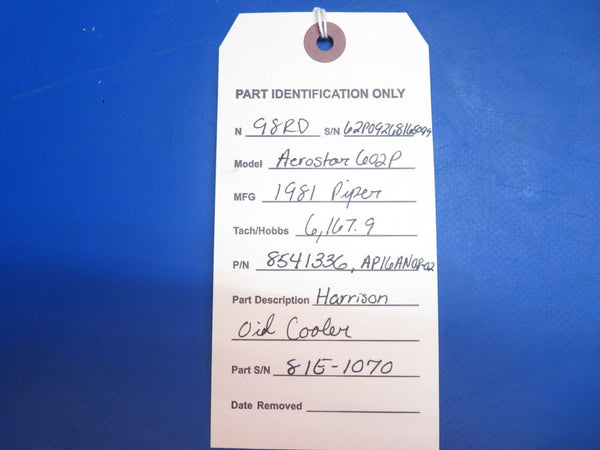 PART IDENTIFICATION ONLY
N 98RD S/N 62P09268165099
Model Aerostar 602P
MFG 1981 Piper
Tach/Hobbs 6,167.9
P/N 8541336, AP16AN08-02
Part Description Harrison
Oil Cooler
Part S/N 81E-1070
Date Removed